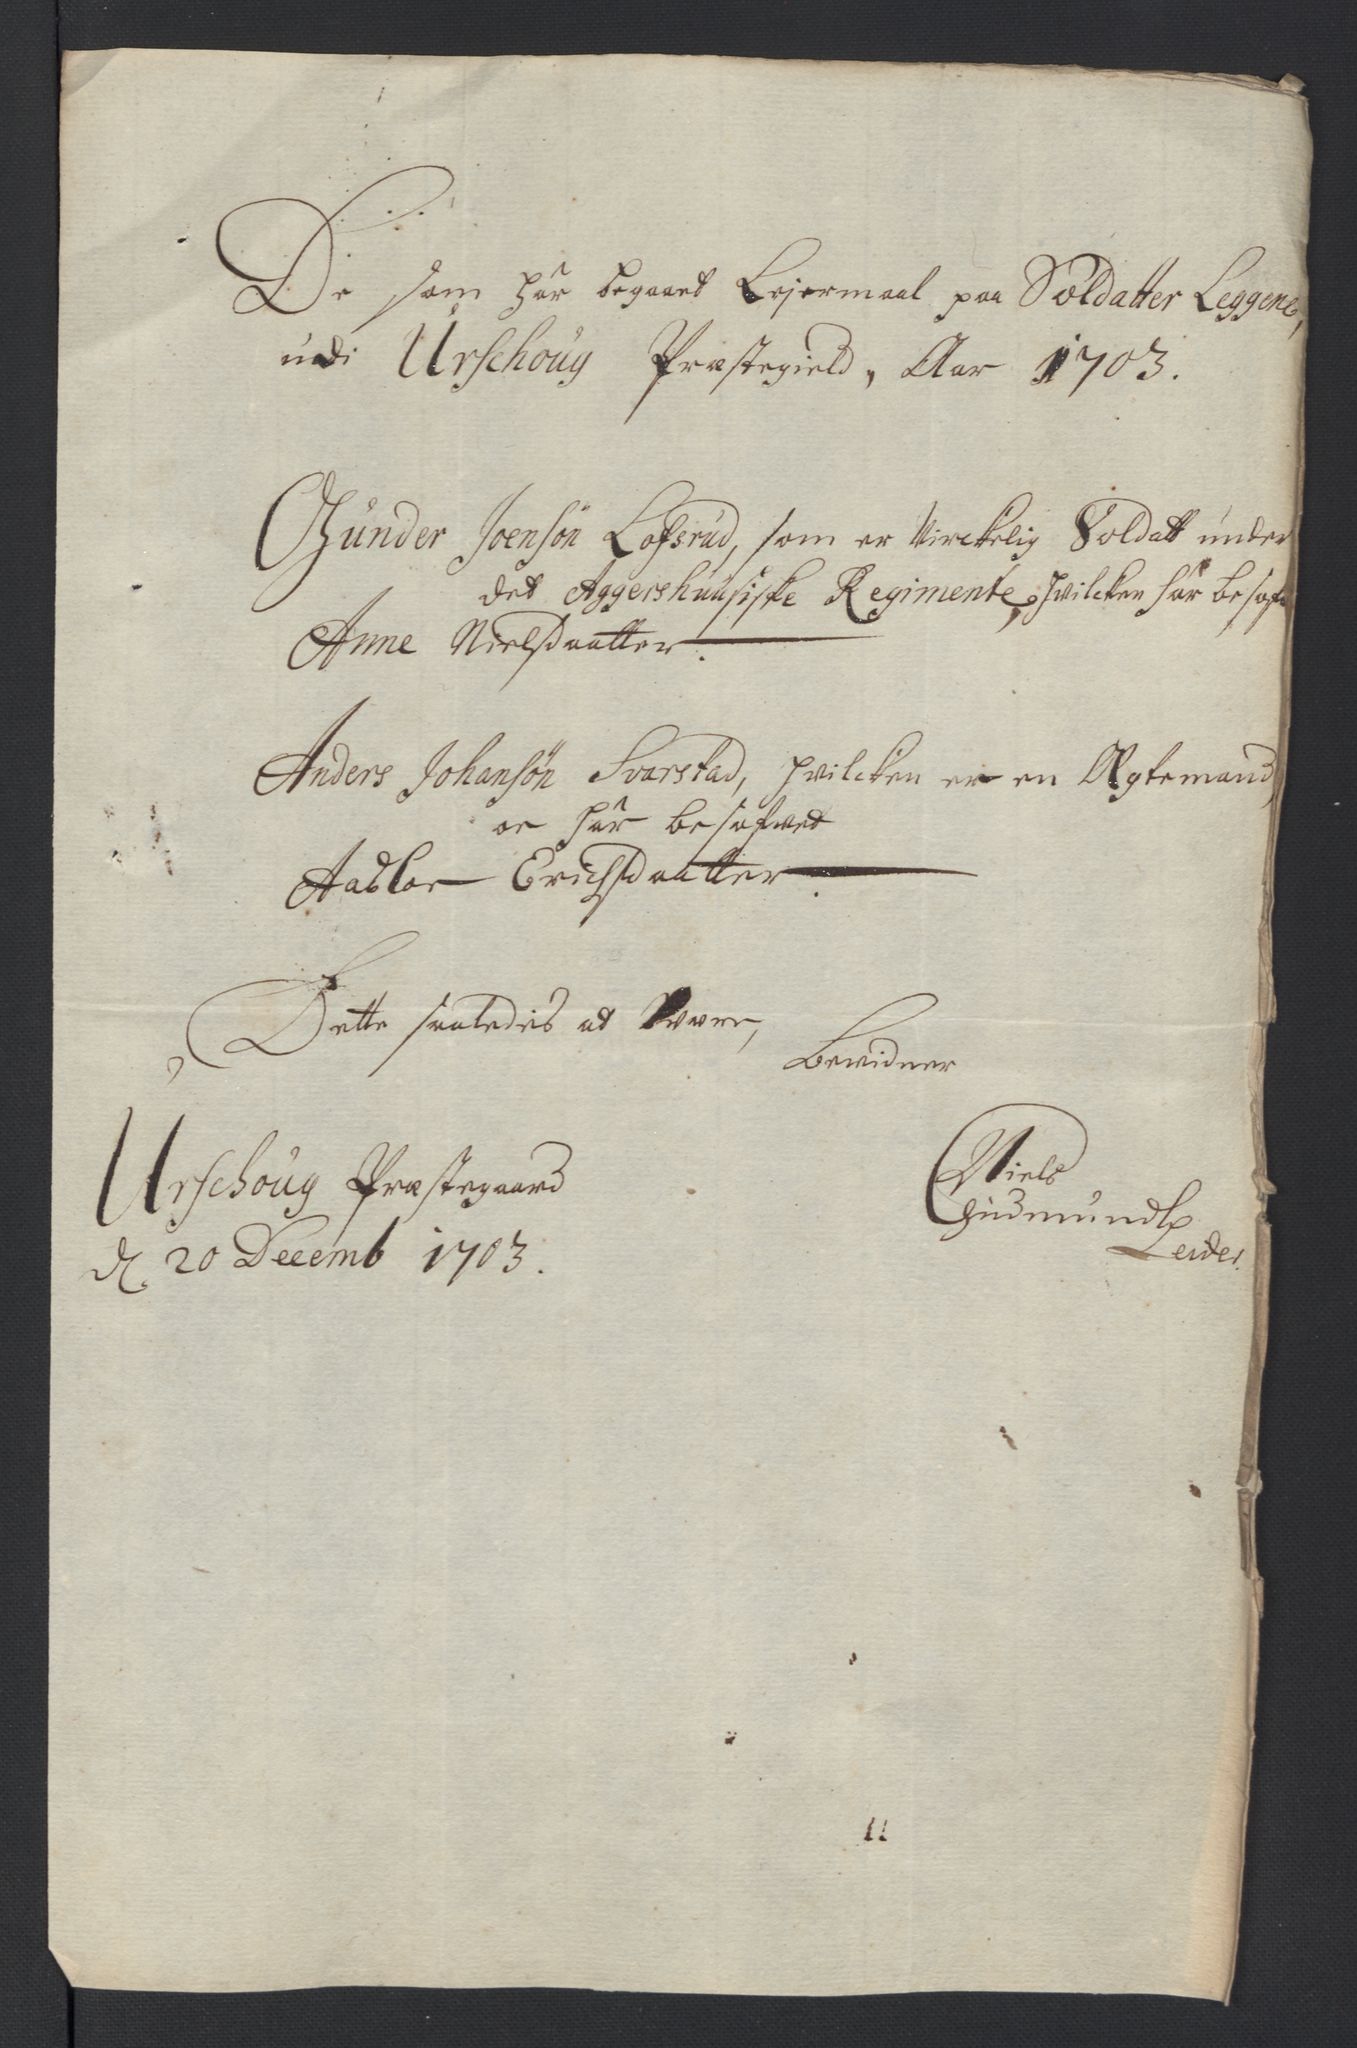 De som har begaaet Leyermaal paa Soldatter Leggene,
udi Urschoug Præstegield, Aar 1703.
Gunder Joensøn Lofsrud, som er Virckelig Soldatt under
det Aggershuusiske Regimente, hvilcken har besofv
Anne Nielsdaatter.
Anders Johansøn Svarstad, hvilcken er en Ægtemand,
oc har besofvet
Aasloe Erichsdaatter.
Dette saaledis at Være,
Bevidner
Urschoug Præstegaard
d. 20 Decemb 1703.
Niels
Gudmundß
Leider.